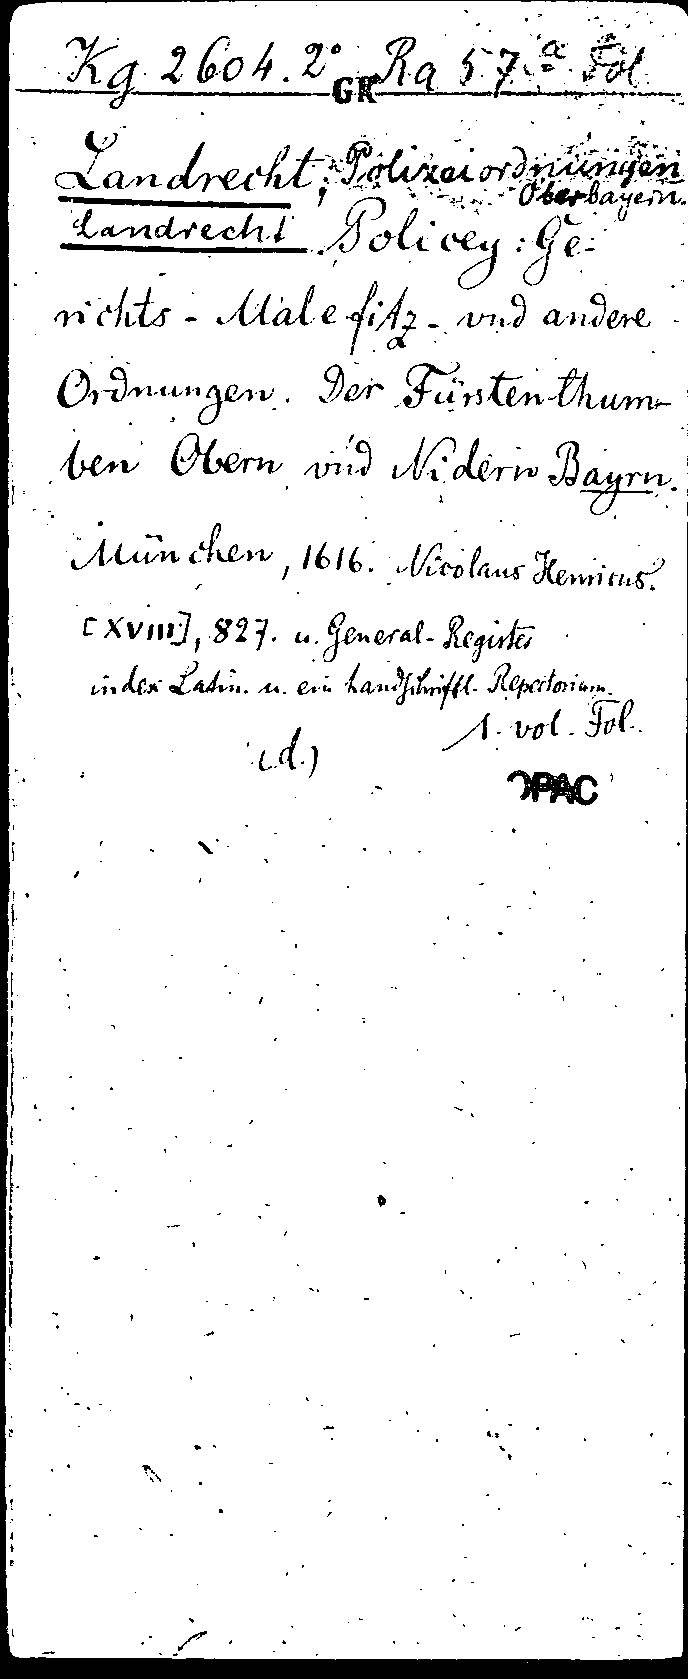 Kg 2604. 2° Ra 57.a Fol
GR
Landrecht, Polizeiordnungen
Oberbayern.
Landrecht Policey: Ge-
richts- Malefitz- vnd andere
Ordnungen. Der Fürstenthum-
ben Obern vnd Nidern Bayrn.
München, 1616. Nicolaus Henricus.
[XVIII], 827. u. General-Register
index Latin. u. ein handschriftl. Repertorium.
1. vol. Fol.
(d.)
OPAC